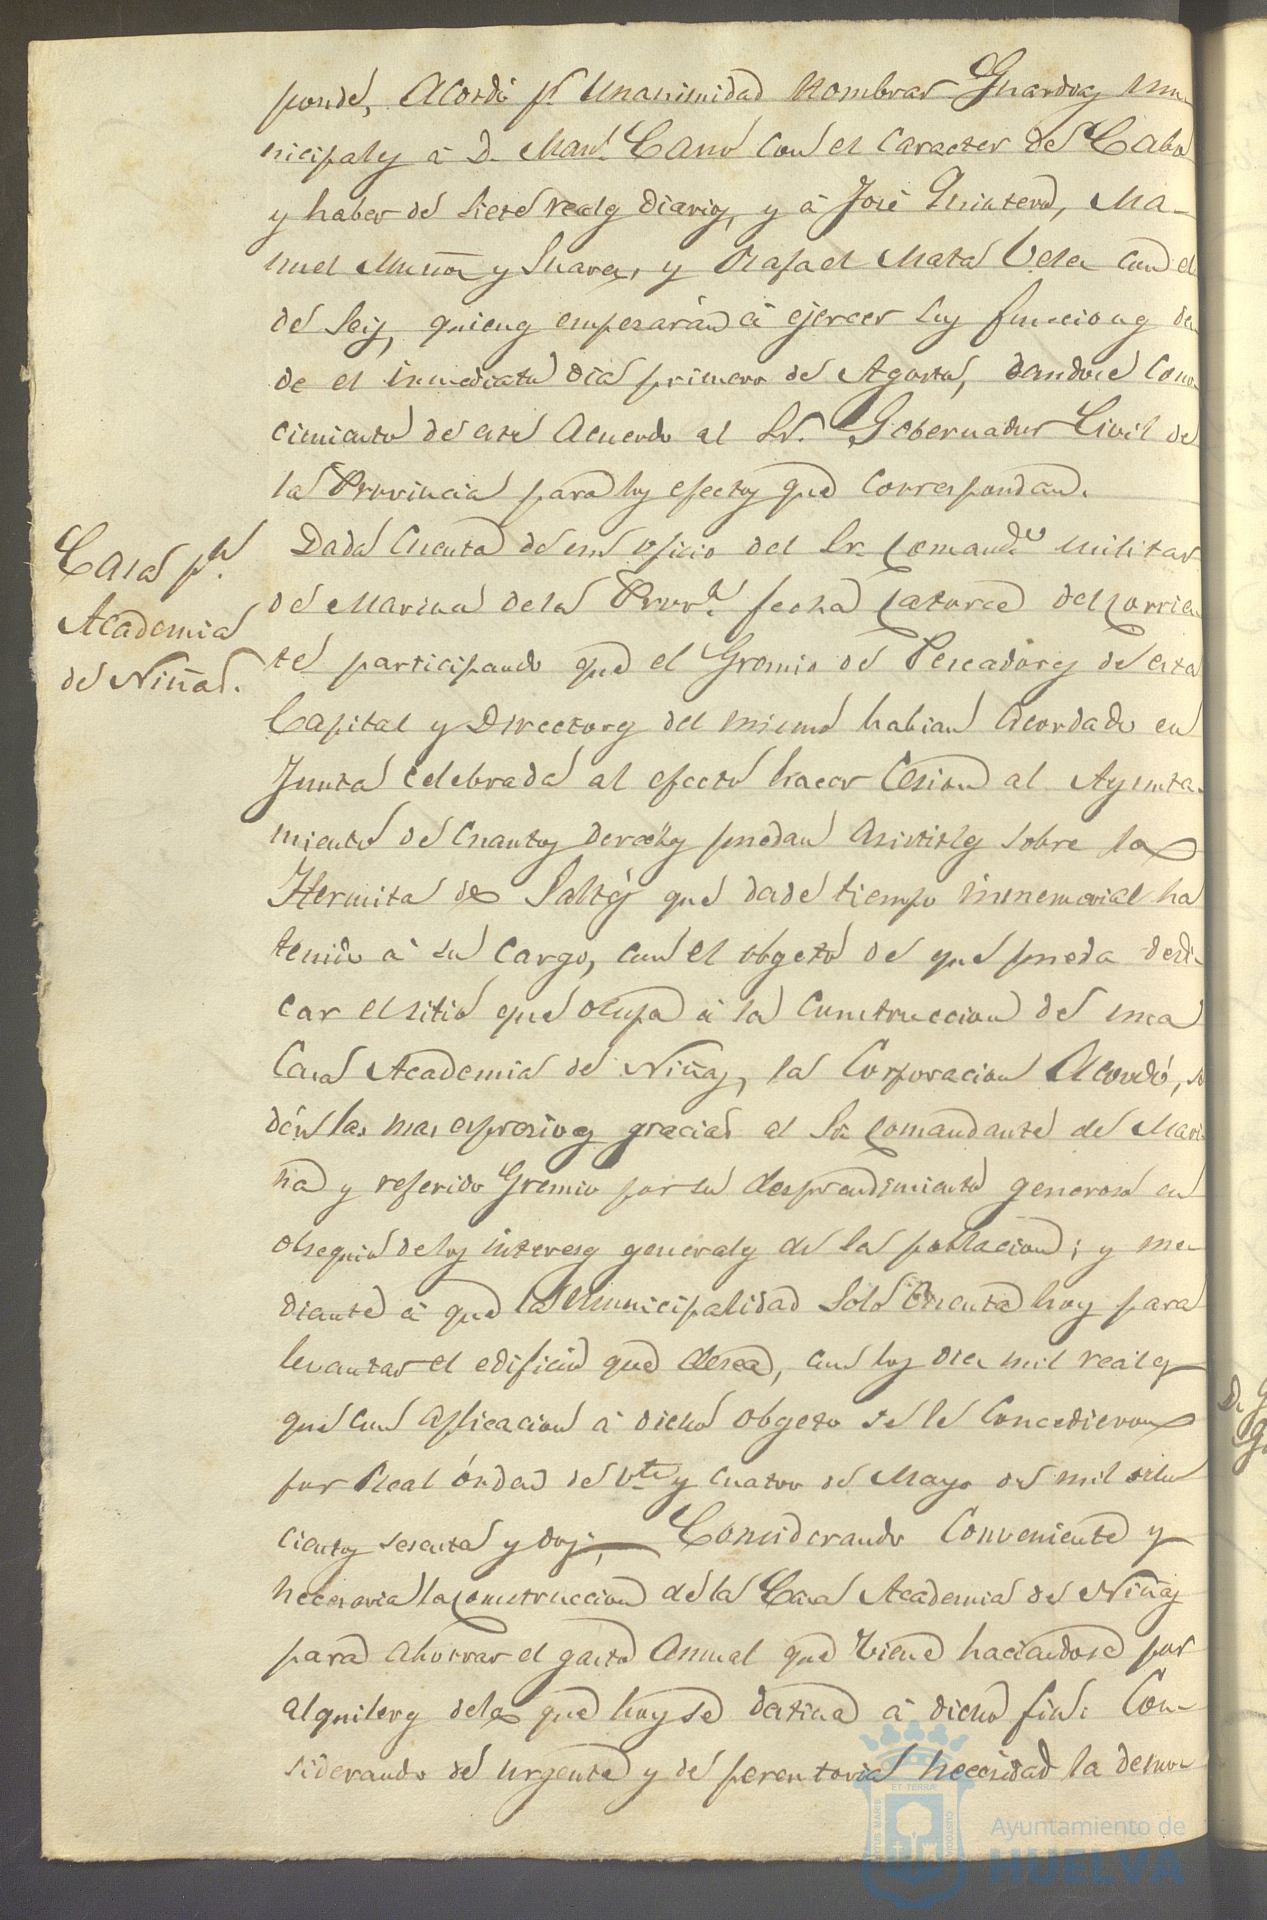 ponde, Acordó pr. Unanimidad Nombrar Guardas Mu-
nicipales á D. Manl. Cano con el Caracter de Cabo
y haber de siete reales diarios, y á José Quintero, Ma-
nuel Muñoz y Suarez, y Rafael Mata Vela con el
de seis, quienes empesarán á ejercer sus funciones des
de el inmediato dia primero de Agosto, dandose Cono-
cimiento de este Acuerdo al Sr. Gobernador Civil de
la Provincia para los efectos que Correspondan.
Casa pa.
Academia
de Niñas.
Dada Cuenta de un oficio del Sr. Comande. militar
de Marina de la Prova. fecha catorce del corrien
te participando que el Gremio de Pescadores de esta
Capital y Directores del mismo habian Acordado en
Junta celebrada al efecto hacer Cesion al Ayunta-
miento de Cuantos derechos puedan Asistirles sobre la
Hermita de Saltés que desde tiempo inmemorial ha
tenido á su cargo, con el obgeto de que pueda dedi-
car el sitio que ocupa á la Construccion de una
Casa Academia de Niñas, la Corporacion Acordó, se
dén las mas espresivas gracias al Sr. Comandante de Mari
na y referido Gremio por su desprendimiento generoso en
obsequio de los intereses generales de la poblacion; y me-
diante á que la Municipalidad Solo Cuenta hoy para
levantar el edificio que desea, con los diez mil reales
que con aplicacion á dicho obgeto se le Concedieron
por Real órden de Vte. y cuatro de Mayo de mil ocho
cientos sesenta y dos; Considerando Conveniente y
necesaria la construccion de la Casa Academia de Niñas
para ahorrar el gasto Annual que viene haciendose por
alquileres de la que hoy se destina á dicho fin: Con-
siderando de urgente y de perentoria necesidad la demo-
D. G
ET TERRÆ
PORTUS MARIS
CUSTODIA
Ayuntamiento de
HUELVA